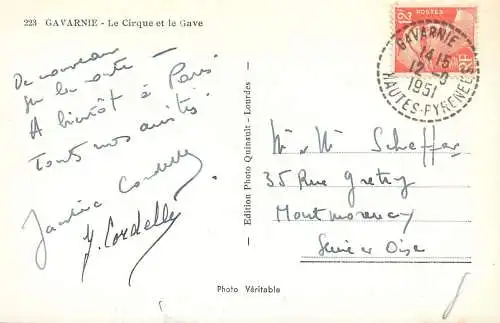 223 GAVARNIE - Le Cirque et le Gave
De nouveau
sur la route -
A bientôt à Paris
Toutes nos amitiés!
Cordelle
Y. Cordelle
Edition Photo Quinault - Lourdes
Photo Véritable
12F
POSTES
RF
GAVARNIE
14 15
1951
HAUTES-PYRENEES
M et M Scheffer
35 Rue Gretry
Montmorency
Seine et Oise